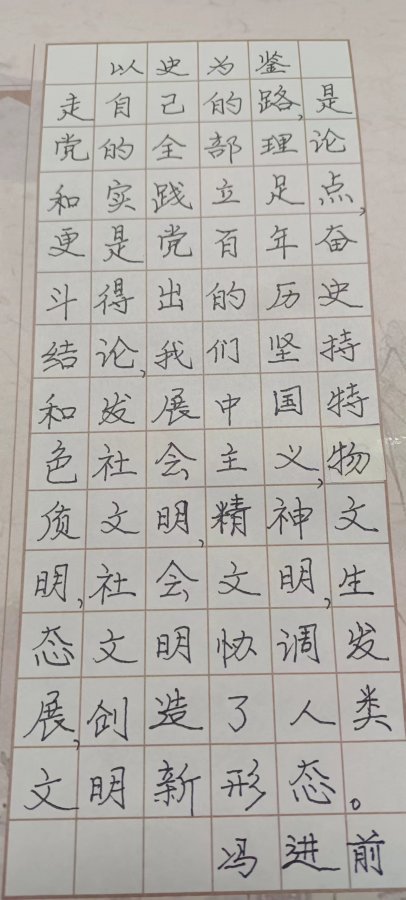 以史为鉴
走自己的路,是
党的全部理论
和实践立足点,
更是党百年奋
斗得出的历史
结论,我们坚持
和发展中国特
色社会主义,物
质文明,精神文
明,社会文明,生
态文明协调发
展,创造了人类
文明新形态。
冯进前